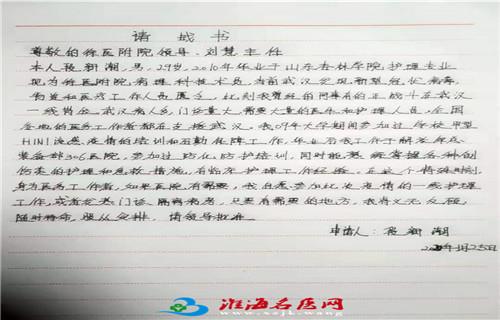 请战书
尊敬的徐医附院领导、刘慧主任
本人 新潮,男,29岁,2010年毕业于山东杏林学院护理专业
现为徐医附院病理科技术员,当前武汉 新型冠状病毒,
医疗工作人员 ,此刻我曾经的同事有的正战斗在武汉
一线岗位,武汉病人多,门诊量大,需要大量的医生和护理人员,全国
各地的医务工作者都在支援武汉。我09年大学期间参加过学校甲型
H1N1流感疫情的培训和后勤保障工作,毕业后我工作于解放军总
装备部306医院,参加过防化防护培训,同时能熟练掌握各种创
伤类的护理和急救措施,有临床护理工作经验。在这个特殊时刻,
身为医务工作者,如果医院有需要,我自愿参加此次疫情的一线护理
工作,或者发热门诊、隔离病房,只要有需要的地方,我将义无反顾,
随时待命,服从安排,请领导批准。
申请人: 新潮
月25日
淮海名医网
www.sxjk.wang